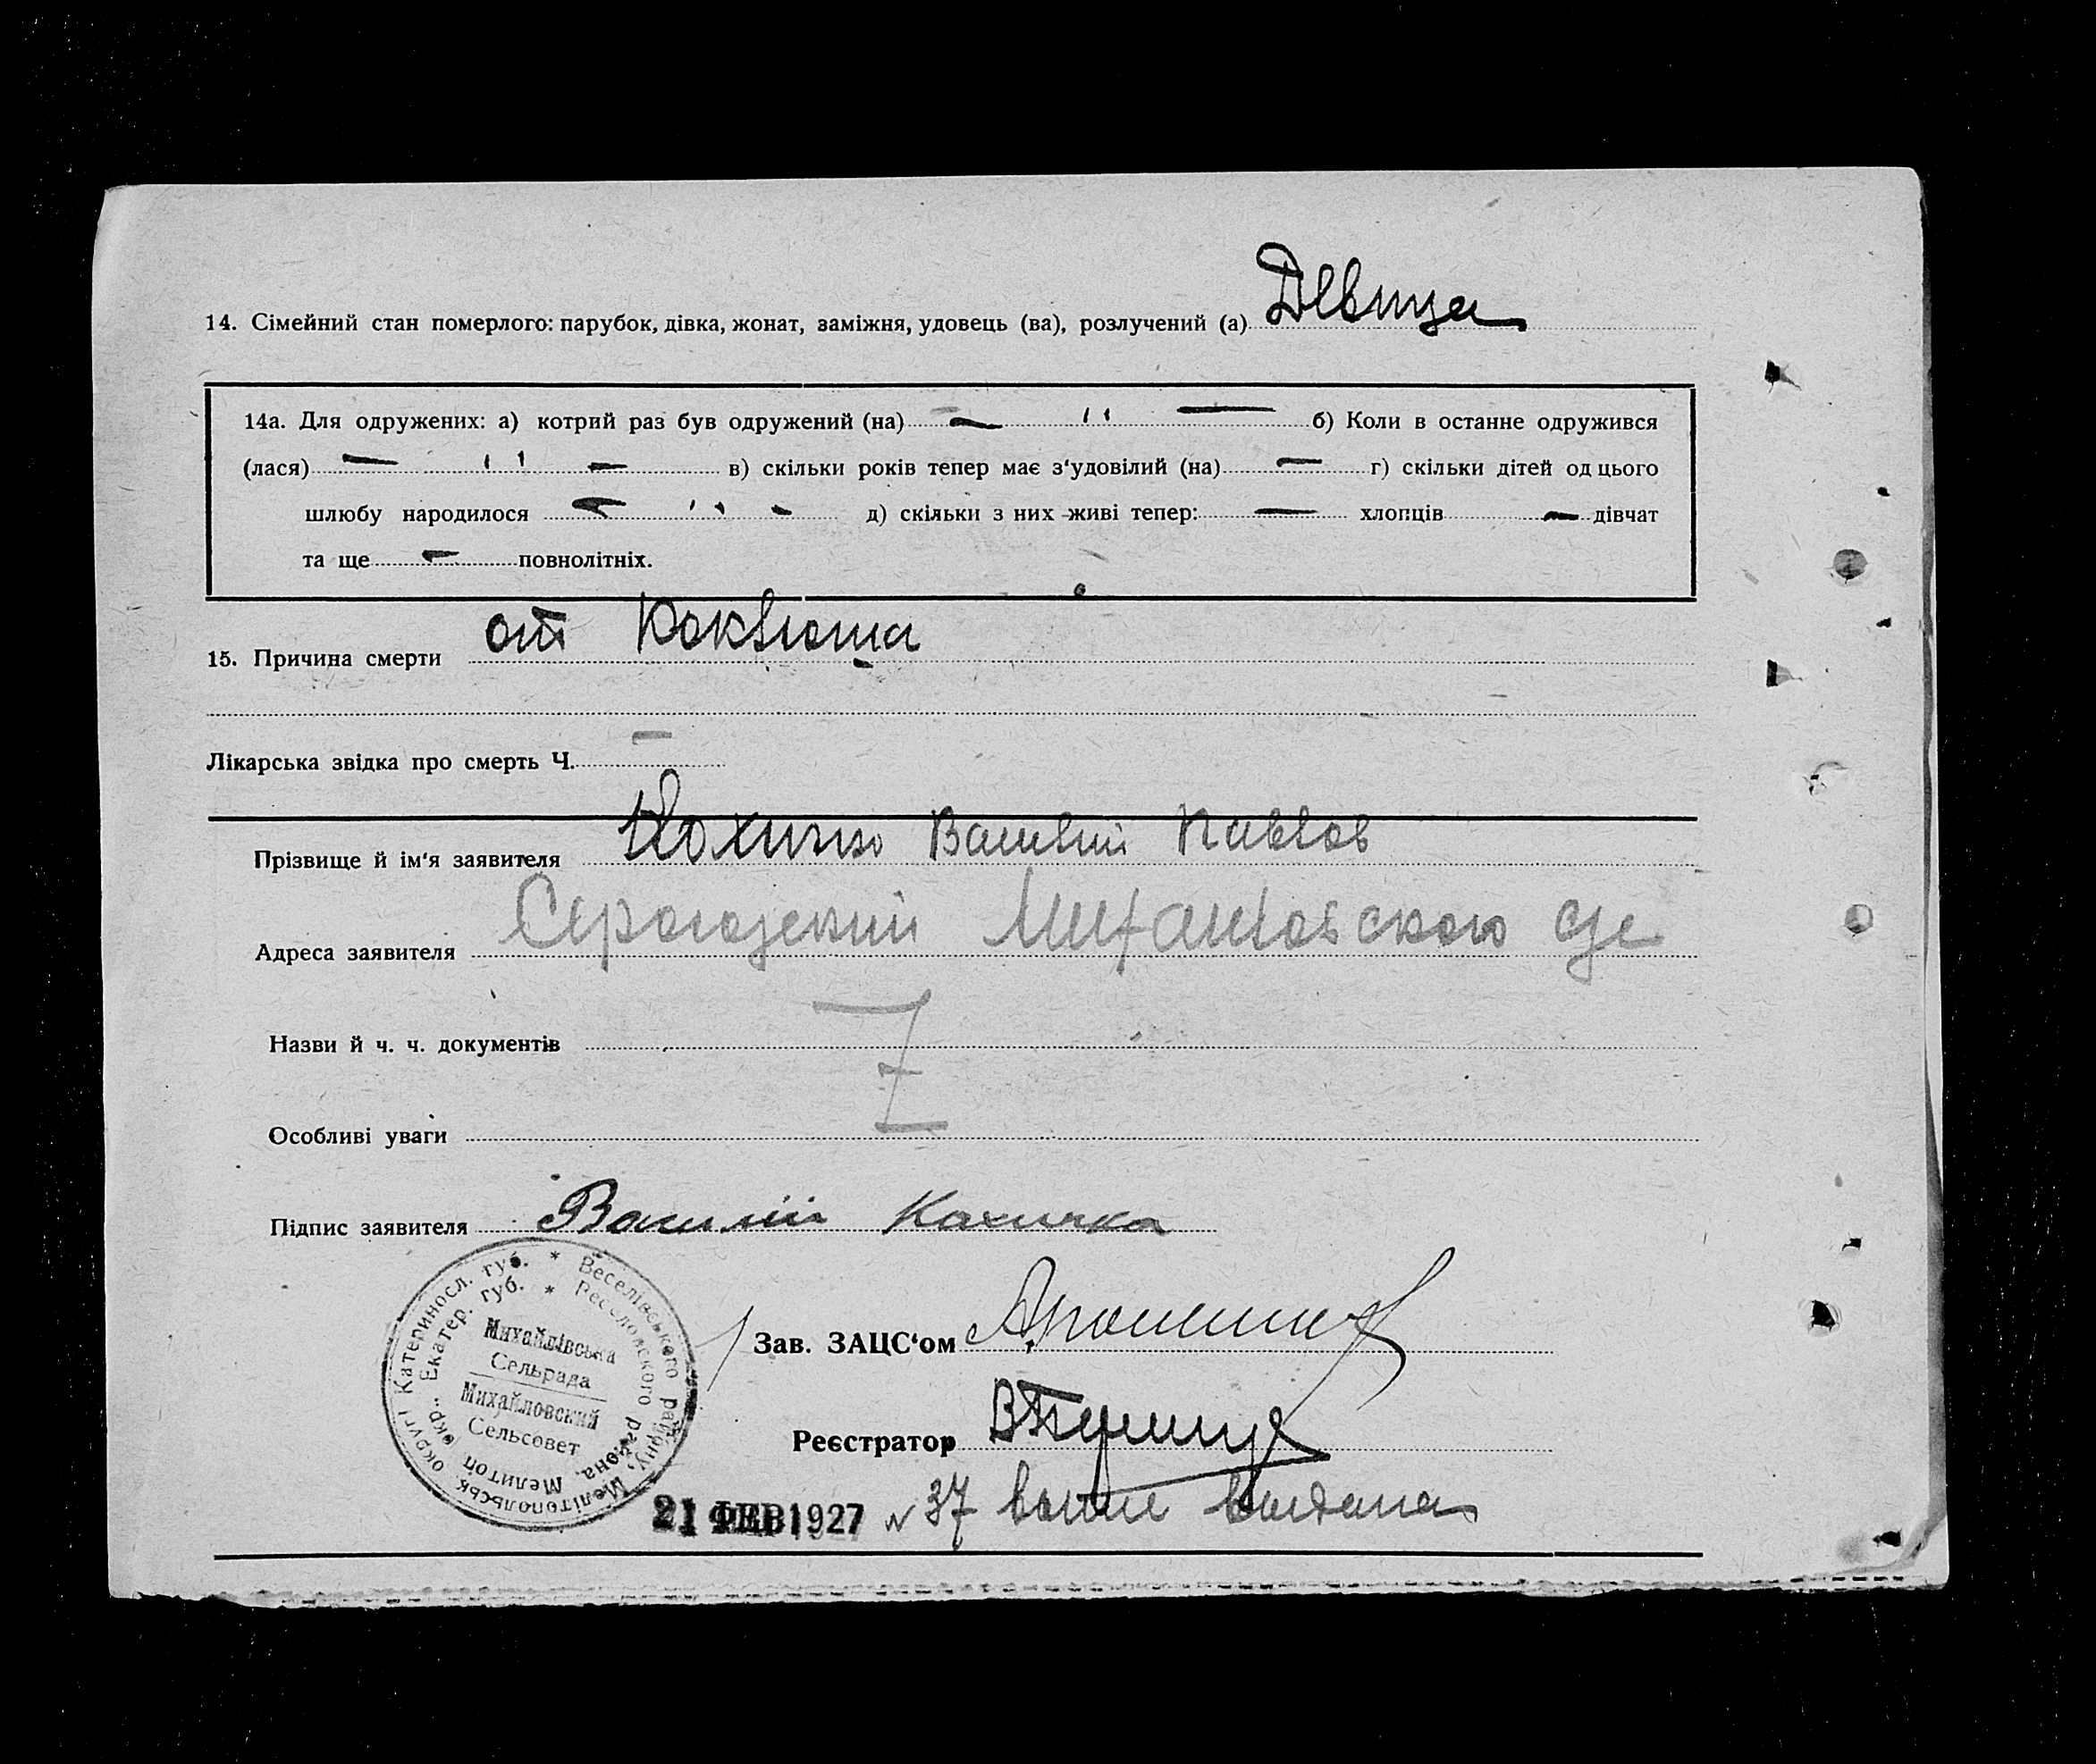 14. Сімейний стан померлого: парубок, дівка, жонат, заміжня, удовець (ва), розлучений (а) Девица
14а. Для одружених: а) котрий раз був одружений (на) — " — б) Коли в останне одружився
(лася) — " — в) скільки років тепер має з'удовілий (на) — г) скільки дітей од цього
шлюбу народилося — " — д) скільки з них живі тепер: — хлопців — дівчат
та ще — повнолітніх.
15. Причина смерти от Коклюша
Лікарська звідка про смерть Ч. —
Прізвище й ім'я заявителя Василий Павлов
Адреса заявителя
Назви й ч. ч. документів
Особливі уваги
Підпис заявителя Василий Кахичка
Катериносл. губ. * Веселівського району, Мелітопольськ. округі
Екатер. губ. * Веселовского района, Мелитоп. окр.,
Михайлівська
Сельрада
Михайловский
Сельсовет
Зав. ЗАЦС'ом
Реєстратор
21 ФЕВ 1927 № 37 выдана